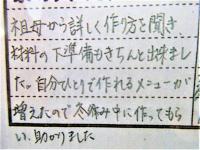 祖母から詳しく作り方を聞き
材料の下準備もきちんと出来まし
た。自分ひとりで作れるメニューが
増えたので冬休み中に作ってもら
い、助かりました